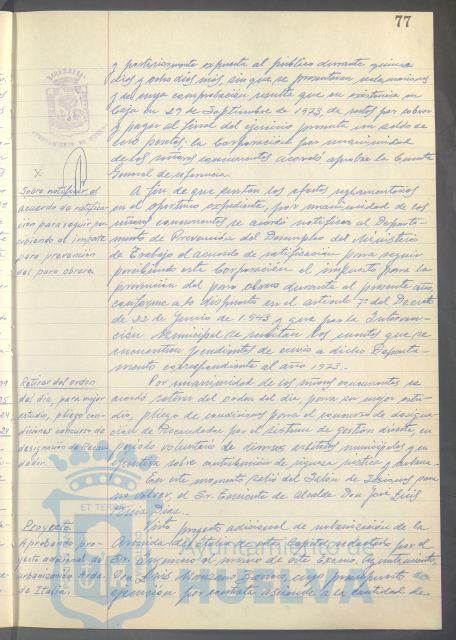 77
y posteriormente expuesta al publico durante quince
dias y ocho dias más, sin que se presentaran reclamaciones
y de cuya comprobación resulta que su existencia en
Caja en 29 de Septiembre de 1973, de restos por cobrar
y pagar al final del ejercicio presenta un saldo de
cero pesetas; la Corporación por unanimidad
de los señores concurrentes acordó aprobar la Cuenta
General de referencia.
Sobre notificar el
acuerdo de ratifica-
ción para seguir per-
cibiendo el importe
para prevención
del paro obrero.
A fin de que surtan los efectos reglamentarios
en el oportuno expediente, por unanimidad de los
señores concurrentes se acordó notificar al Departa-
mento de Prevención del Desempleo del Ministerio
de Trabajo el acuerdo de ratificación para seguir
percibiendo esta Corporación el impuesto para la
prevención del paro obrero durante el presente año,
conforme a lo dispuesto en el articulo 7º del Decreto
de 22 de Junio de 1943 y que por la Interven-
ción Municipal se remitan los que se
encuentran pendientes de envio a dicho Departa-
mento correspondiente al año 1973.-
Retirar del orden
del dia, para mejor
estudio, pliego con-
diciones concurso de
designación de Recau-
dador.
Por unanimidad de los señores concurrentes se
acordó retirar del orden del dia para su mejor estu-
dio, pliego de condiciones para el concurso de designa-
ción de Recaudador por el sistema de gestión directa, en
periodo voluntario de diversos arbitrios municipales y en
ejecutiva sobre contribución de riqueza rústica y urbana.-
En este momento salió del Salón de Sesiones para
no volver, el Sr. Teniente de Alcalde Don José Luis
Diaz.-
Proyecto
Aprobando pro-
yecto adicional de
urbanización Avda.
de Italia.
Visto proyecto adicional de urbanización de la
Avenida de Italia de esta Capital redactado por el
Sr. Ingeniero al servicio de este Excmo. Ayuntamiento,
Don Luis cuyo presupuesto de
ejecución por contrata asciende a la cantidad de
ET TERRA
Ayuntamiento de
HUELVA